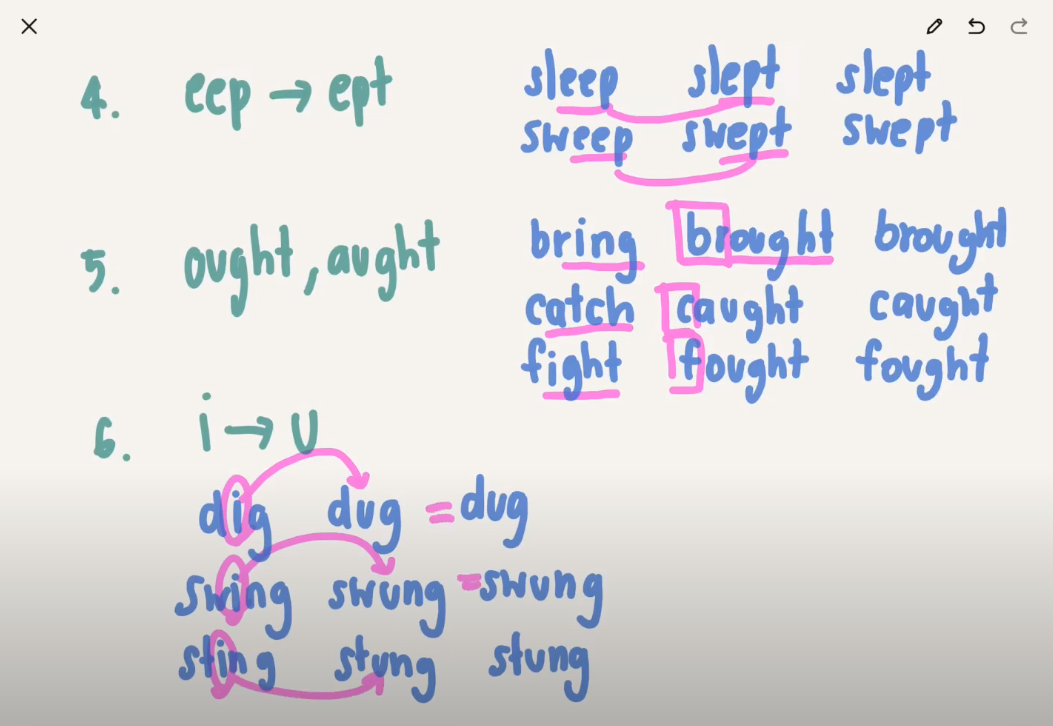 4. eep → ept sleep slept slept
sweep swept swept
5. ought, aught bring brought brought
catch caught caught
fight fought fought
6. i → u
dig dug = dug
swing swung = swung
sting stung stung